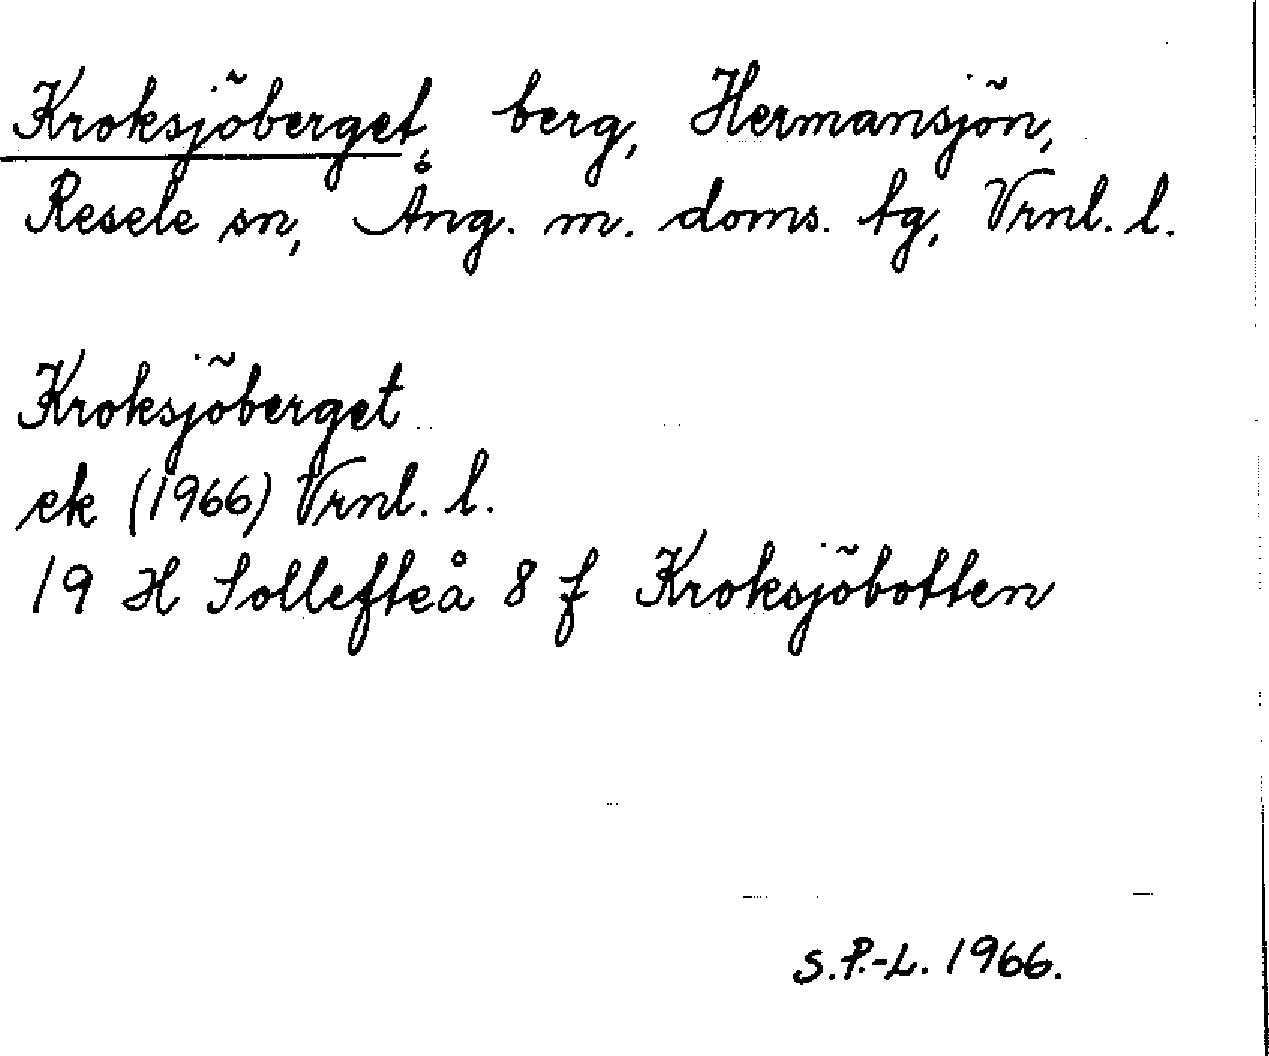 Kroksjöberget, berg, Hermansjön,
Resele sn, Ång. m. doms. tg, Vrnl. l.
Kroksjöberget
ek (1966) Vrnl. l.
19 H Sollefteå 8 f Kroksjöbotten
S.P.-L. 1966.